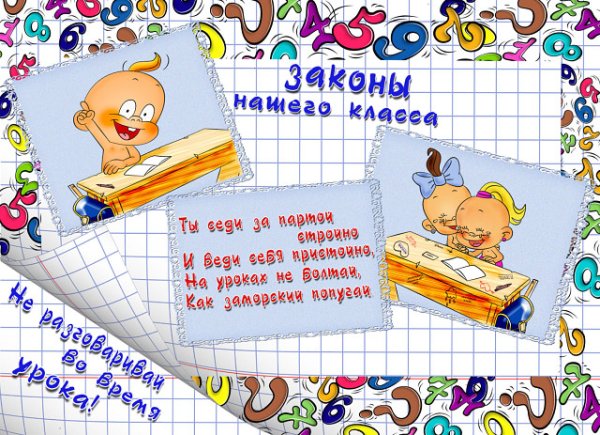 законы
нашего класса
Ты седи за партой
стройно
И веди себя пристойно,
На уроках не болтай,
Как заморский попугай
Не разговаривай
во время
урока!